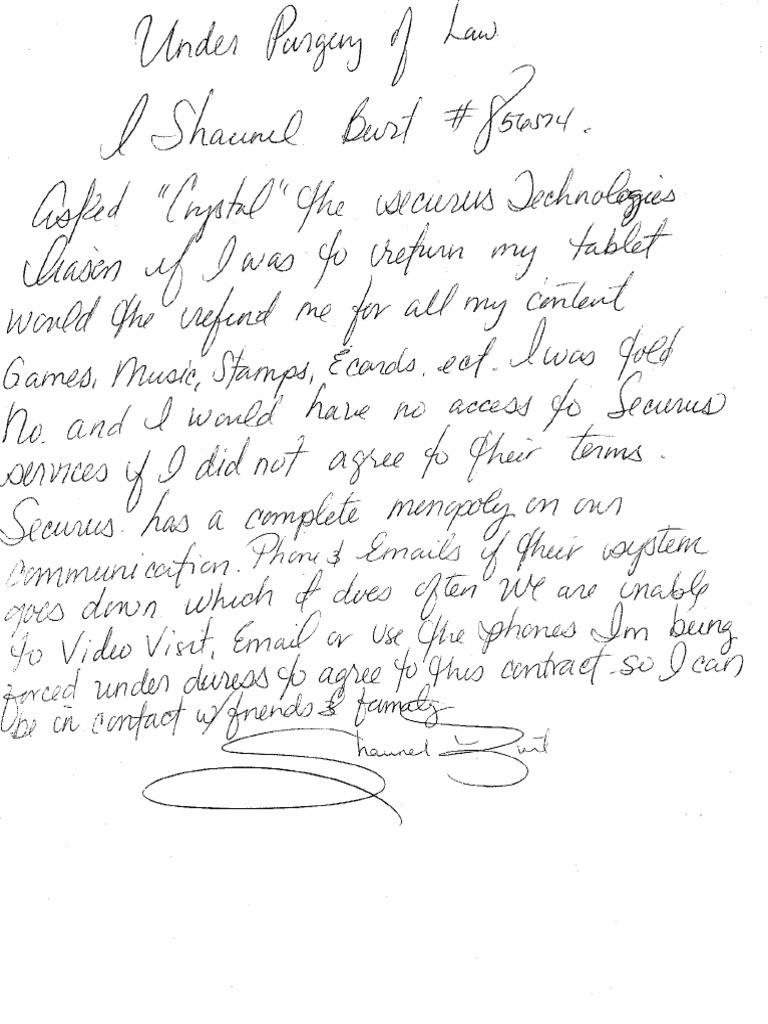 Under Purgery of Law
I Shaunel Burt #856574.
Asked "Crystal" the securus Technologies
liaisen if I was to return my tablet
would the refund me for all my content
Games, Music, Stamps, Ecards, ect. I was told
No. and I would have no access to Securus
services if I did not agree to their terms.
Securus has a complete monopoly on our
communication. Phone & Emails if their system
goes down which it does often we are unable
to Video Visit, Email or use the phones Im being
forced under duress to agree to this contract so I can
be in contact w/ friends & family
Shaunel Burt